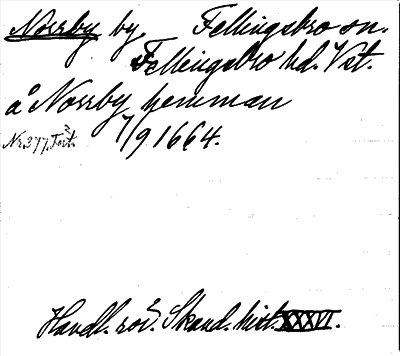 Norrby by. Fellingsbro sn.
Fellingsbro hd. Vstm.
å Norrby hemman
7/9 1664.
Handl. rör. Skand. hist. XXXVI.